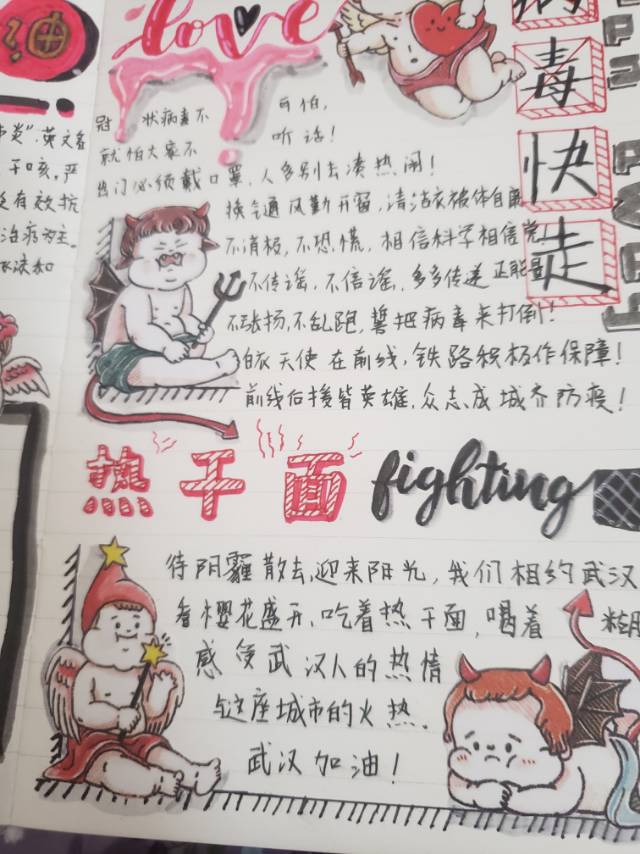 love
毒
快
走
炎"，英文名
干咳，严
有效抗
治疗为主。
冠状病毒不可怕，
就怕大家不听话！
出门必须戴口罩，人多别去凑热闹！
换气通风勤开窗，清洁衣被体自
不消极，不恐慌，相信科学相信党
不传谣，不信谣，多多传递正能量
不张扬，不乱跑，誓把病毒来打倒！
白衣天使在前线，铁路积极作保障！
前线后援皆英雄，众志成城齐防疫！
热干面 fighting
待阴霾散去，迎来阳光，我们相约武汉
看樱花盛开，吃着热干面，喝着
感受武汉人的热情
与这座城市的火热。
武汉加油！